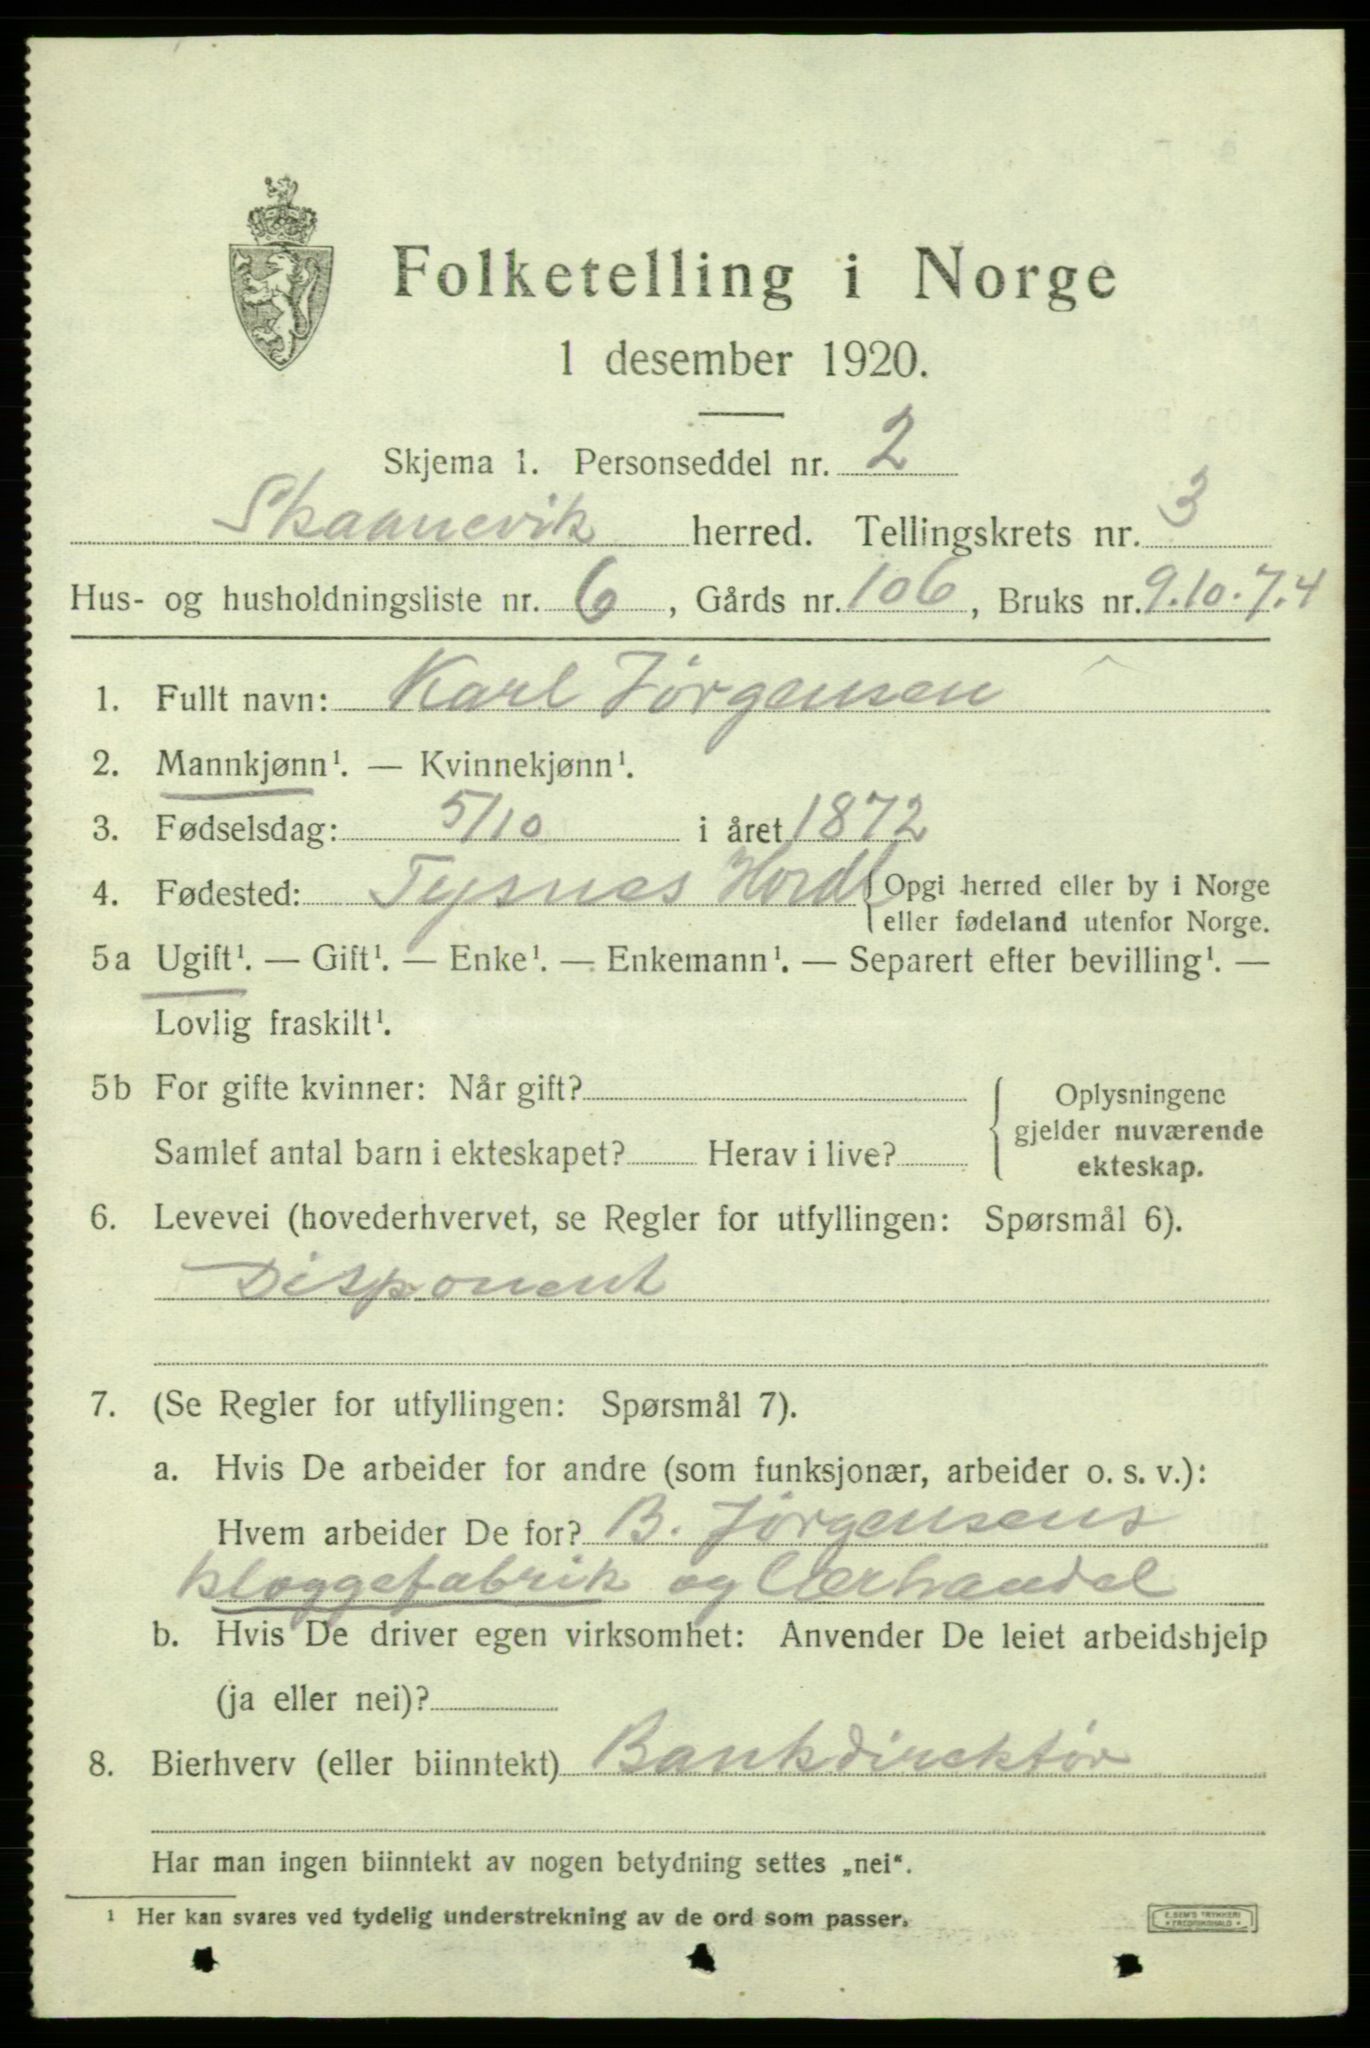 Folketelling i Norge
1 desember 1920.
Skjema 1. Personseddel nr. 2
Skaanevik herred. Tellingskrets nr. 3
Hus- og husholdningsliste nr. 6, Gårds nr. 106, Bruks nr. 9.10.7.4
1. Fullt navn: Karl Jørgensen
2. Mannkjønn¹. — Kvinnekjønn¹.
3. Fødselsdag: 5/10 i året 1872
4. Fødested: Tysnes Hordl {Opgi herred eller by i Norge
eller fødeland utenfor Norge.
5a Ugift¹. — Gift¹. — Enke¹. — Enkemann¹. — Separert efter bevilling¹. —
Lovlig fraskilt¹.
5b For gifte kvinner: Når gift?
Samlet antal barn i ekteskapet? Herav i live?
Oplysningene
gjelder nuværende
ekteskap.
6. Levevei (hovederhvervet, se Regler for utfyllingen: Spørsmål 6).
Disponent
7. (Se Regler for utfyllingen: Spørsmål 7).
a. Hvis De arbeider for andre (som funksjonær, arbeider o. s. v.):
Hvem arbeider De for? B. Jørgensens
kloggefabrik og Lærhandel
b. Hvis De driver egen virksomhet: Anvender De leiet arbeidshjelp
(ja eller nei)?
8. Bierhverv (eller biinntekt) Bankdirektør
Har man ingen biinntekt av nogen betydning settes „nei“.
¹ Her kan svares ved tydelig understrekning av de ord som passer.
E. SEM'S TRYKKERI
FREDRIKSHALD